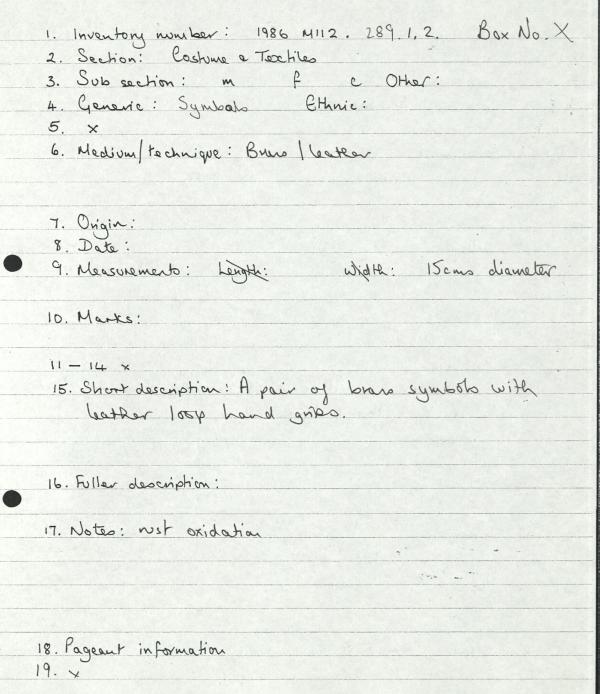 1. Inventory number: 1986 M112. 289.1,2. Box No. X
2. Section: Costume & Textiles
3. Sub section: m f c Other:
4. Generic: Symbols Ethnic:
5. x
6. Medium/technique: Brass/leather
7. Origin:
8. Date:
9. Measurements: Length: Width: 15cms diameter
10. Marks:
11 - 14 x
15. Short description: A pair of brass symbols with
leather loop hand grips.
16. Fuller description:
17. Notes: rust oxidation
18. Pageant information
19. x